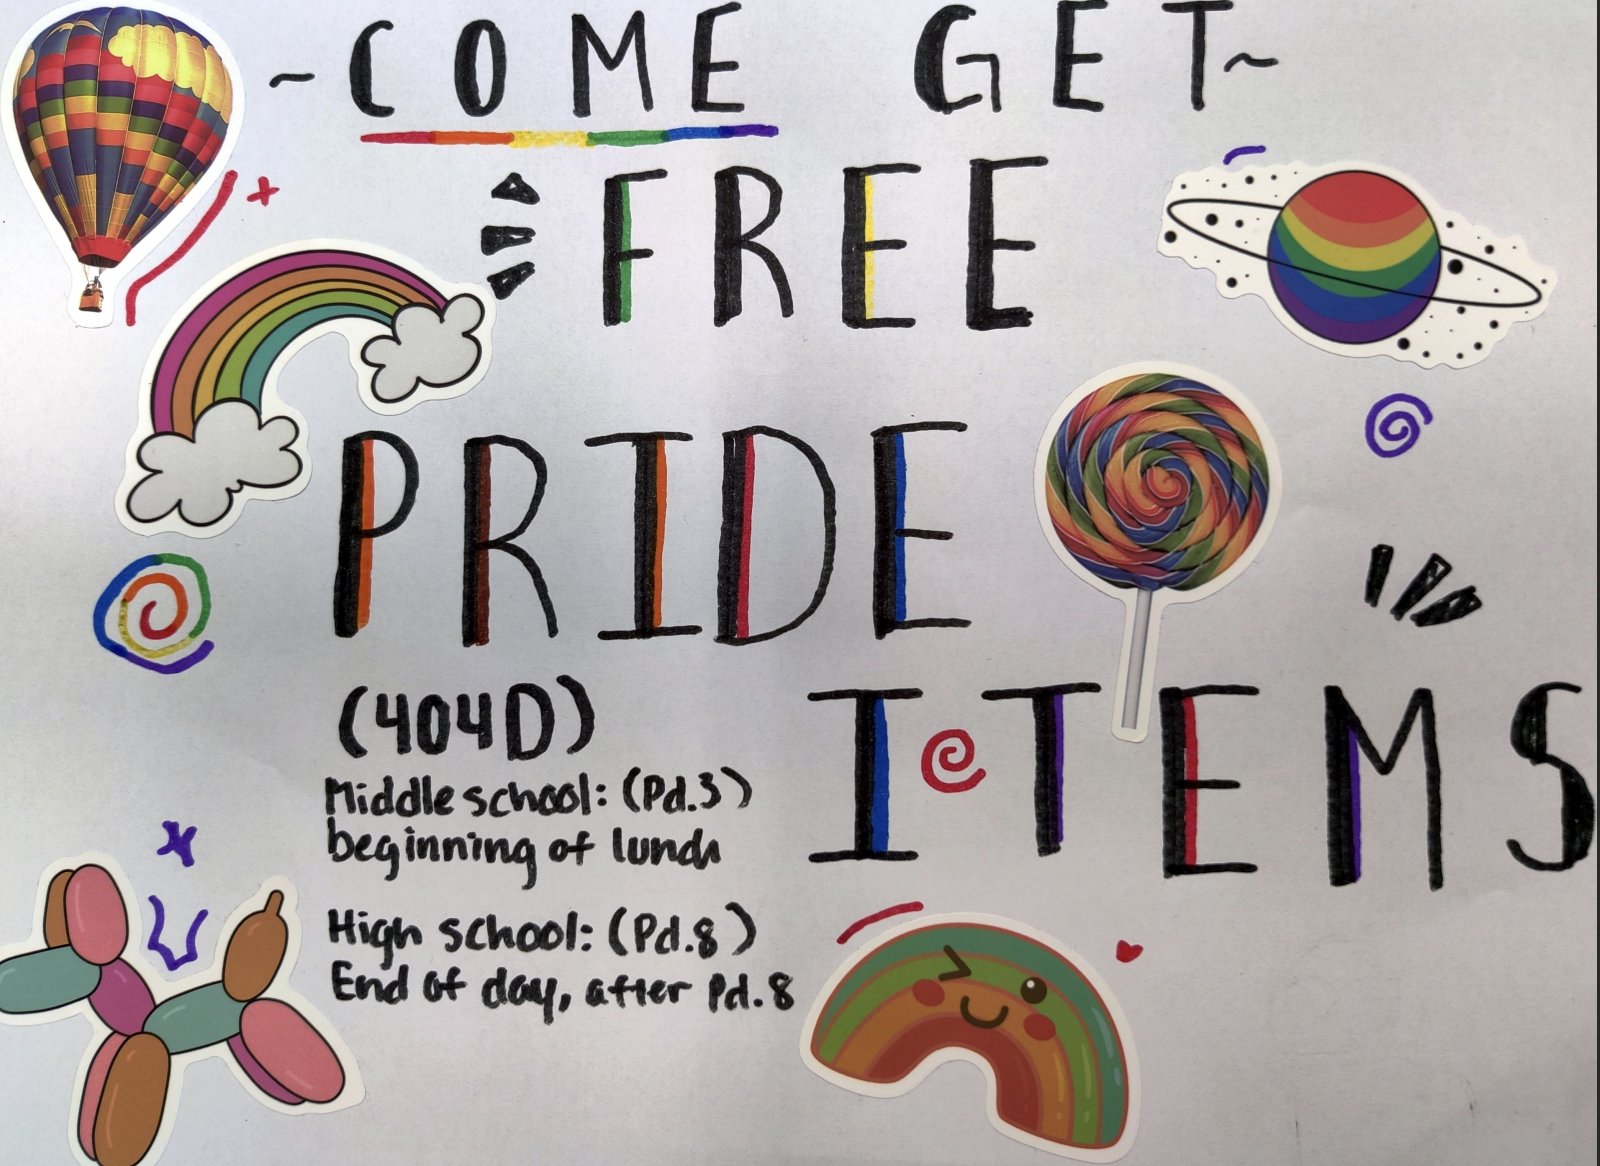 ~COME GET~
FREE
PRIDE
ITEMS
(404D)
Middle school: (Pd.3)
beginning of lunch
High school: (Pd.8)
End of day, after Pd.8